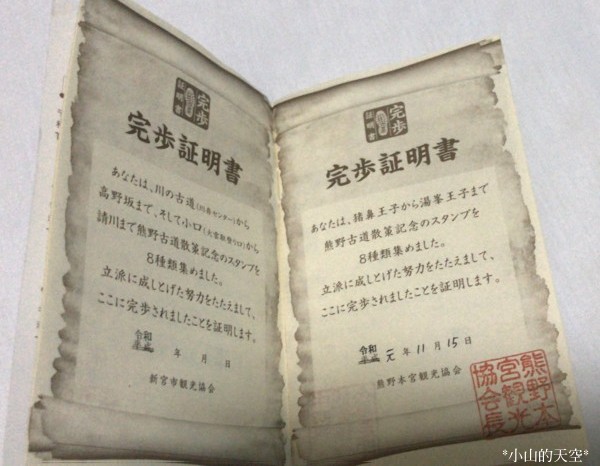 完歩
証明書
完歩証明書
あなたは、川の古道(川舟センター)から
高野坂まで、そして小口(大雲取登り口)から
請川まで熊野古道散策記念のスタンプを
8種類集めました。
立派に成しとげた努力をたたえまして、
ここに完歩されましたことを証明します。
令和
平成 年 月 日
新宮市観光協会
完歩
証明書
完歩証明書
あなたは、猪鼻王子から湯峯王子まで
熊野古道散策記念のスタンプを
8種類集めました。
立派に成しとげた努力をたたえまして、
ここに完歩されましたことを証明します。
令和
平成 元年 11月 15日
熊野本宮観光協会
熊野本
宮観光
協会長
*小山的天空*